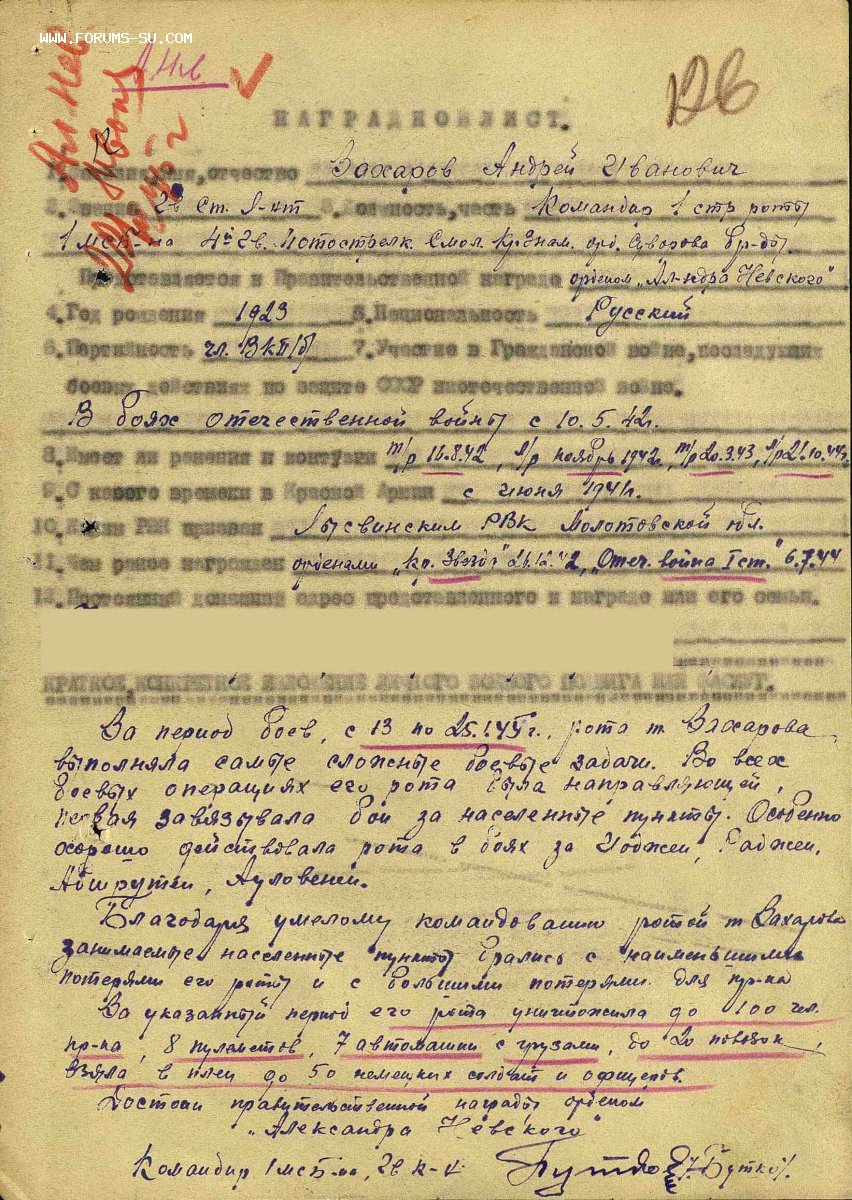 WWW.FORUMS-SU.COM
А.Нев.
126
Ал Нев
НАГРАДНОЙ ЛИСТ.
1. Фамилия, имя, отчество Захаров Андрей Иванович
2. Звание гв. Ст. Л-нт 3. Должность, часть Командир 1 стр роты
1 МСБ-на 4й гв. Мотострелк. Смол. Кр.Знам. орд. Суворова бр-ды.
Представляется к Правительственной награде орденом „Ал-ндра Невского"
4. Год рождения 1923 5. Национальность Русский
6. Партийность чл. ВКП/б/ 7. Участие в Гражданской войне, последующих
боевых действиях по защите СССР и отечественной войне.
В боях отечественной войны с 10.5.42г.
8. Имеет ли ранения и контузии т/р 16.8.42, л/р ноябрь 1942, т/р 20.3.43, л/р 21.10.44г.
9. С какого времени в Красной Армии с июня 1941г.
10. Каким РВК призван Лысвинским РВК Молотовской обл.
11. Чем ранее награжден орденами „Кр. Звезда" 26.12.42, „Отеч. война I ст." 6.7.44
12. Постоянный домашний адрес представленного к награде или его семьи.
КРАТКОЕ, КОНКРЕТНОЕ ИЗЛОЖЕНИЕ ЛИЧНОГО БОЕВОГО ПОДВИГА ИЛИ ЗАСЛУГ.
За период боев, с 13 по 25.1.45г., рота т. Захарова
выполняла самые сложные боевые задачи. Во всех
боевых операциях его рота была направляющей,
первая завязывала бои за населенные пункты. Особенно
хорошо действовала рота в боях за
Абшрутен, Ауловенен.
Благодаря умелому командованию ротой т Захарова
занимаемые населенные пункты брались с наименьшими
потерями его роты и с большими потерями для пр-ка
За указанный период его рота уничтожила до 100 чел.
пр-ка, 8 пулеметов, 7 автомашин с грузами, до 20 повозок,
взяла в плен до 50 немецких солдат и офицеров.
Достоин правительственной награды орденом
„Александра Невского"
Командир 1 МСБ-на, гв. к-н /Бутко/.